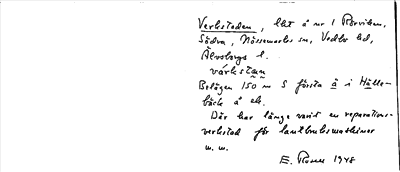 Verkstaden, lht å nr 1 Rörviken,
Södra,        sn, Vedbo hd,
Älvsborgs l.
värkstan
Belägen 150 m S första ä i Hälle-
bäck å ek.
Där har länge varit en reparations-
verkstad för lantbruksmaskiner
m.m.
E. Rosen 1948